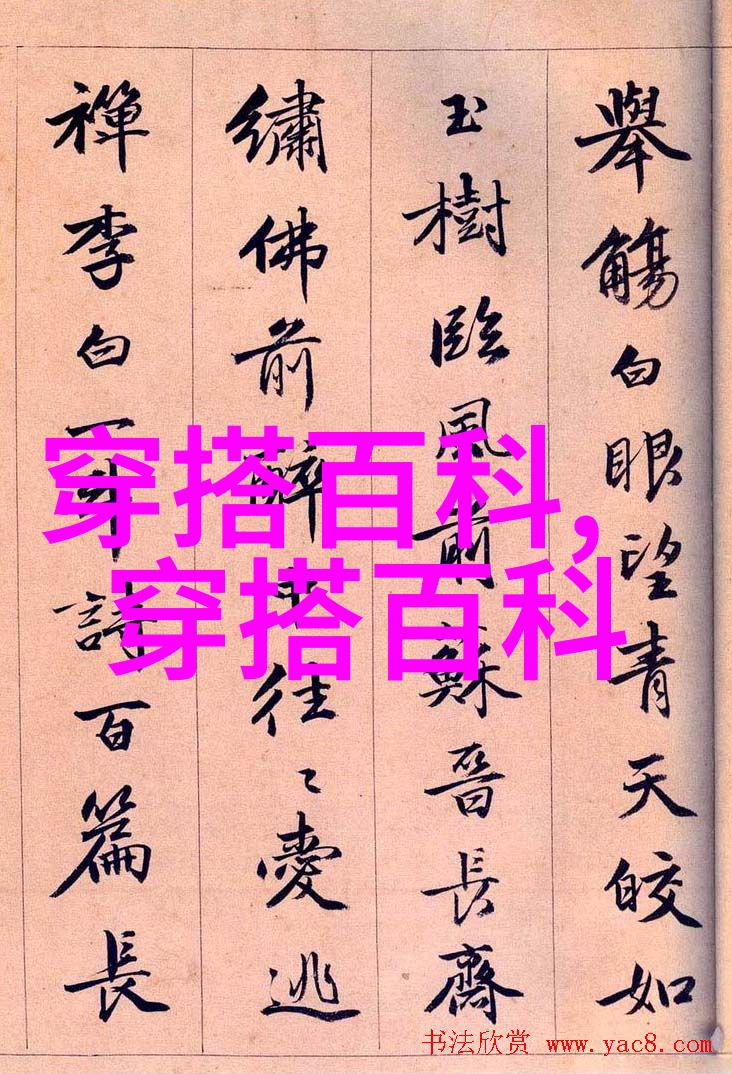 舉觴白眼望青天皎如
玉樹臨風前蘇晉長齋
繡佛前醉中往々愛逃
禪李白一斗詩百篇長
穿搭百科,
穿搭百科
书法欣赏 www.yac8.com